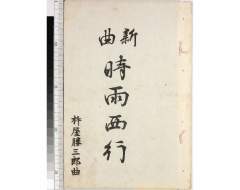 新曲
時雨西行
杵屋勝三郎曲